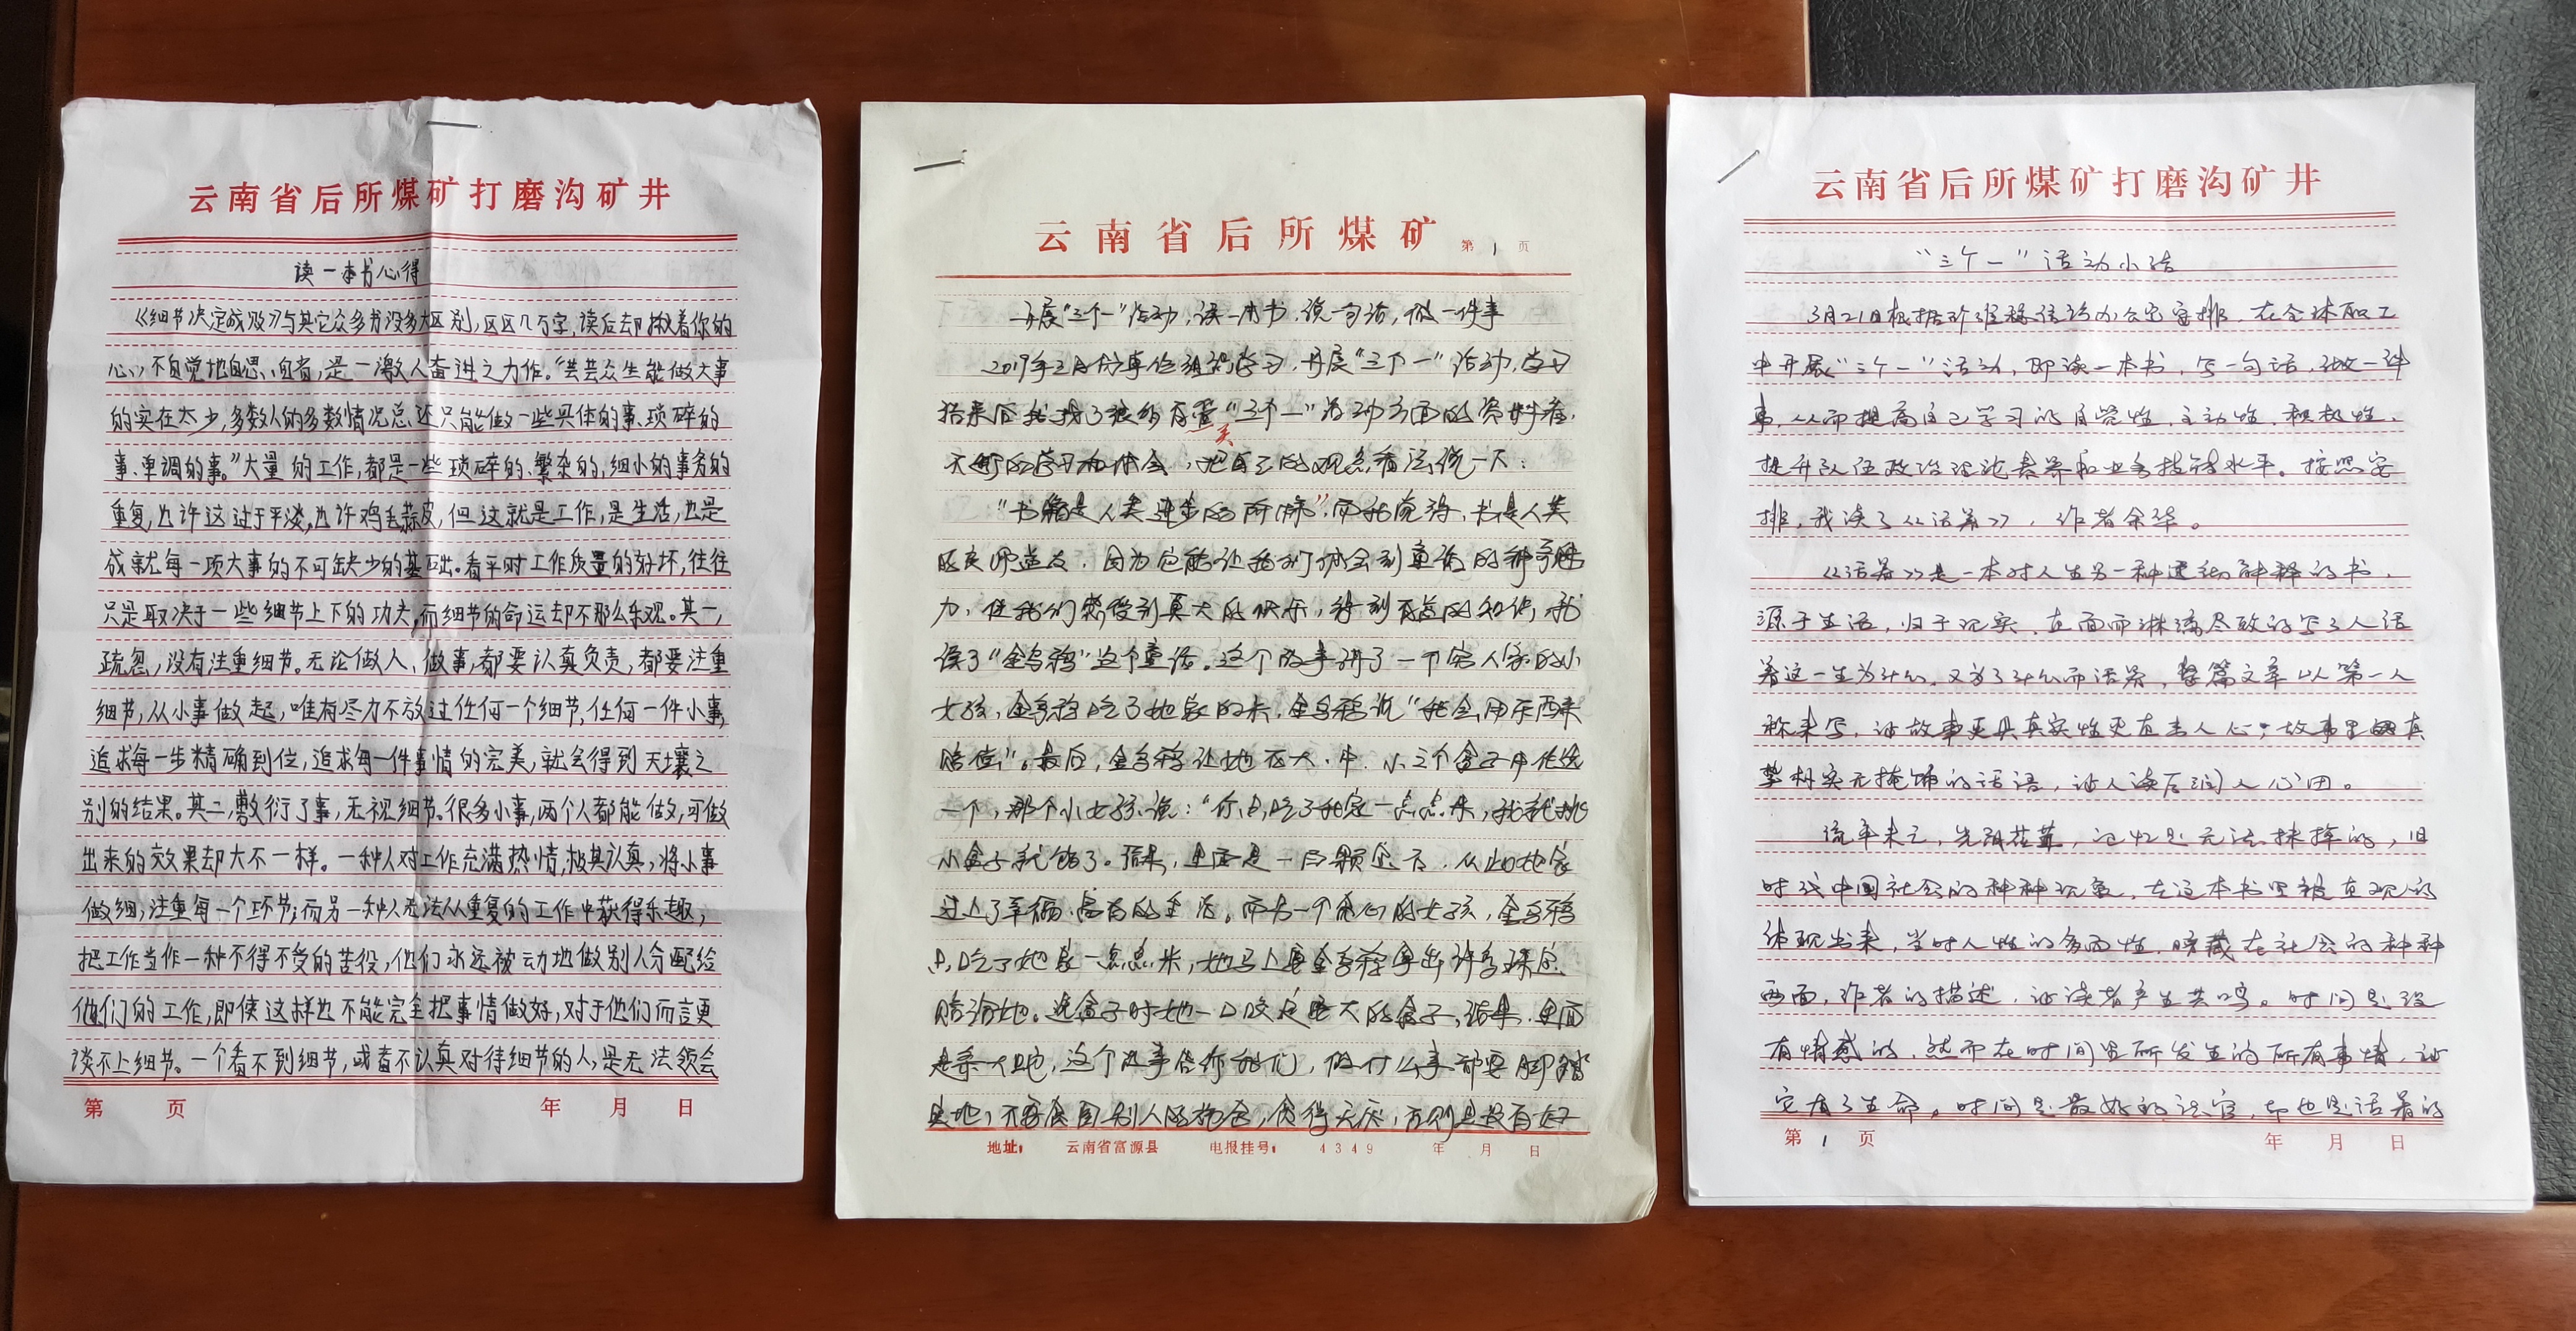 云南省后所煤矿打磨沟矿井
读一本书心得
《细节决定成败》与其它众多书没多大区别,区区几万字,读后却揪着你的
心,不自觉地自思、自省,是一激人奋进之力作。“芸芸众生能做大事
的实在太少,多数人的多数情况总还只能做一些具体的事、琐碎的
事、单调的事。”大量的工作,都是一些琐碎的、繁杂的,细小的事务的
重复,也许这过于平淡,也许鸡毛蒜皮,但这就是工作,是生活,也是
成就每一项大事的不可缺少的基础。看平时工作质量的好坏,往往
只是取决于一些细节上下的功夫,而细节的命运却不那么乐观。其一,
疏忽,没有注重细节。无论做人、做事,都要认真负责,都要注重
细节,从小事做起,唯有尽力不放过任何一个细节,任何一件小事,
追求每一步精确到位,追求每一件事情的完美,就会得到天壤之
别的结果。其二,敷衍了事,无视细节。很多小事,两个人都能做,可做
出来的效果却大不一样。一种人对工作充满热情,极其认真,将小事
做细,注重每一个环节;而另一种人无法从重复的工作中获得乐趣,
把工作当作一种不得不受的苦役,他们永远被动地做别人分配给
他们的工作,即使这样也不能完全把事情做好,对于他们而言更
谈不上细节。一个看不到细节,或者不认真对待细节的人,是无法领会
第 页 年 月 日
云南省后所煤矿 第 1 页
开展“三个一”活动,读一本书,说一句话,做一件事
2019年3月份单位组织学习,开展“三个一”活动,学习
结束后我找了很多有置“三个一”活动方面的资料看,
关
天的学习和体会,把自己的观点看法说一下:
“书籍是人类进步的阶梯”,而我觉得,书是人类
的良师益友,因为它能让我们体会到童话的神奇魅
力,使我们感受到莫大的快乐,得到有益的知识,我
读了“金乌鸦”这个童话。这个故事讲了一个穷人家的小
女孩,金乌鸦吃了她家的米,金乌鸦说“我会用东西来
赔偿”。最后,金乌鸦让她在大、中、小三个盒子中任选
一个,那个小女孩说:“你只吃了我家一点点米,我就挑
小盒子就够了。结果,里面是一百颗宝石,从此她家
过上了幸福、富有的生活。而另一个贪心的女孩,金乌鸦
只吃了她家一点点米,她马上要金乌鸦拿出许多珠宝
赔给她。选盒子时她一口咬定要大的盒子,结果,里面
是条大蛇,这个故事告诉我们,做什么事都要脚踏
实地,不要贪图别人的抱舍,贪得无厌,否则是没有好
地址: 云南省富源县 电报挂号: 4349 年 月 日
云南省后所煤矿打磨沟矿井
“三个一”活动小结
3月21日根据矿维稳信访办公室安排,在全体职工
中开展“三个一”活动,即读一本书,写一句话,做一件
事,从而提高自己学习的自觉性、主动性、积极性,
提升队伍政治理论素养和业务技能水平。按照安
排,我读了《活着》,作者余华。
《活着》是一本对人生另一种透彻解释的书,
源于生活,归于现实,直面而淋漓尽致的写了人活
着这一生为什么,又为了什么而活着,整篇文章以第一人
称来写,让故事更具真实性更直击人心;故事里的真
挚朴实无掩饰的话语,让人读后润人心田。
流年未亡,先陨荏苒,记忆是无法抹掉的,旧
时代中国社会的种种现象,在这本书里被直观的
体现出来,当时人性的多面性,暗藏在社会的种种
两面,作者的描述,让读者产生共鸣。时间是没
有情感的,然而在时间里所发生的所有事情,让
它有了生命。时间是最好的法官,却也是活着的
第 1 页 年 月 日